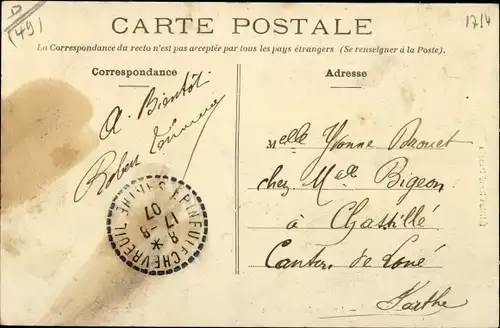 (49)
1714
CARTE POSTALE
La Correspondance du recto n'est pas acceptée par tous les pays étrangers (Se renseigner à la Poste).
Correspondance
Adresse
A. Bientôt
Robert
Melle Yvonne Drouet
chez Melle Bigeon
à Chassillé
Canton de Loué
Sarthe
EPINEU-LE-CHEVREUIL SARTHE
8 *
17-8
07